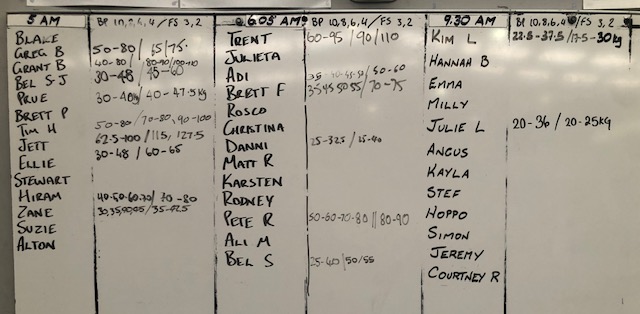 5 AM BP 10,8,6,4 / FS 3,2
BLAKE
GREG B 50-80 / 65/75
GRANT B 40-80 / 80-90/100-110
BEL S-J 30-48 / 45-60
PRUE 30-40kg / 40-47.5kg
BRETT P
TIM H 50-80 / 70-80, 90-100
JETT 62.5-100 / 115, 127.5
ELLIE 30-48 / 60-65
STEWART
HIRAM 40-50-60-70 / 70-80
ZANE 30,35,40,45 / 35-42.5
SUZIE
ALTON
6.05 AM BP 10,8,6,4 / FS 3,2
TRENT 60-95 / 90/110
JULIETA
ADI / 50-60
BRETT F 35 45 50 55 / 70-75
ROSCO
CHRISTINA
DANNI 25-32.5 / 35-40
MATT R
KARSTEN
RODNEY
PETE R 50-60-70-80 || 80-90
ALI M
BEL S 25-40 | 50/55
9.30 AM BP 10,8,6,4 / FS 3,2
KIM L 22.5-37.5 / 17.5-30kg
HANNAH B
EMMA
MILLY
JULIE L 20-36 / 20-25kg
ANGUS
KAYLA
STEF
HOPPO
SIMON
JEREMY
COURTNEY R